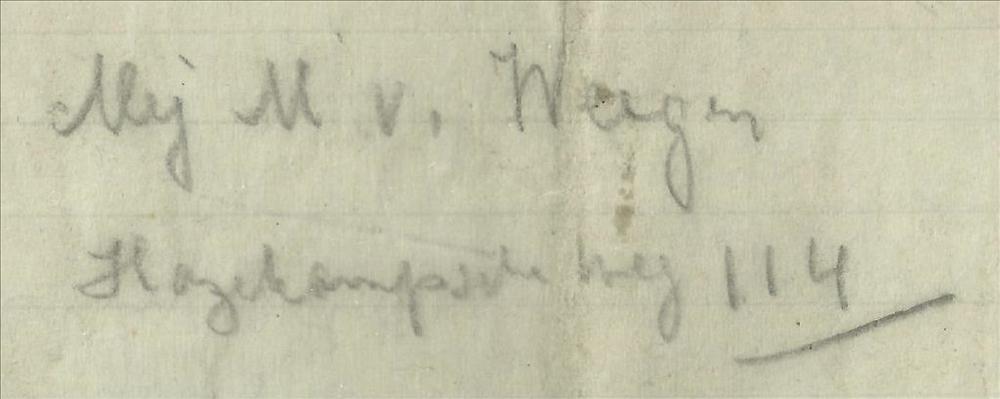 Mej M v. Weegen
Hazekampsche weg 114